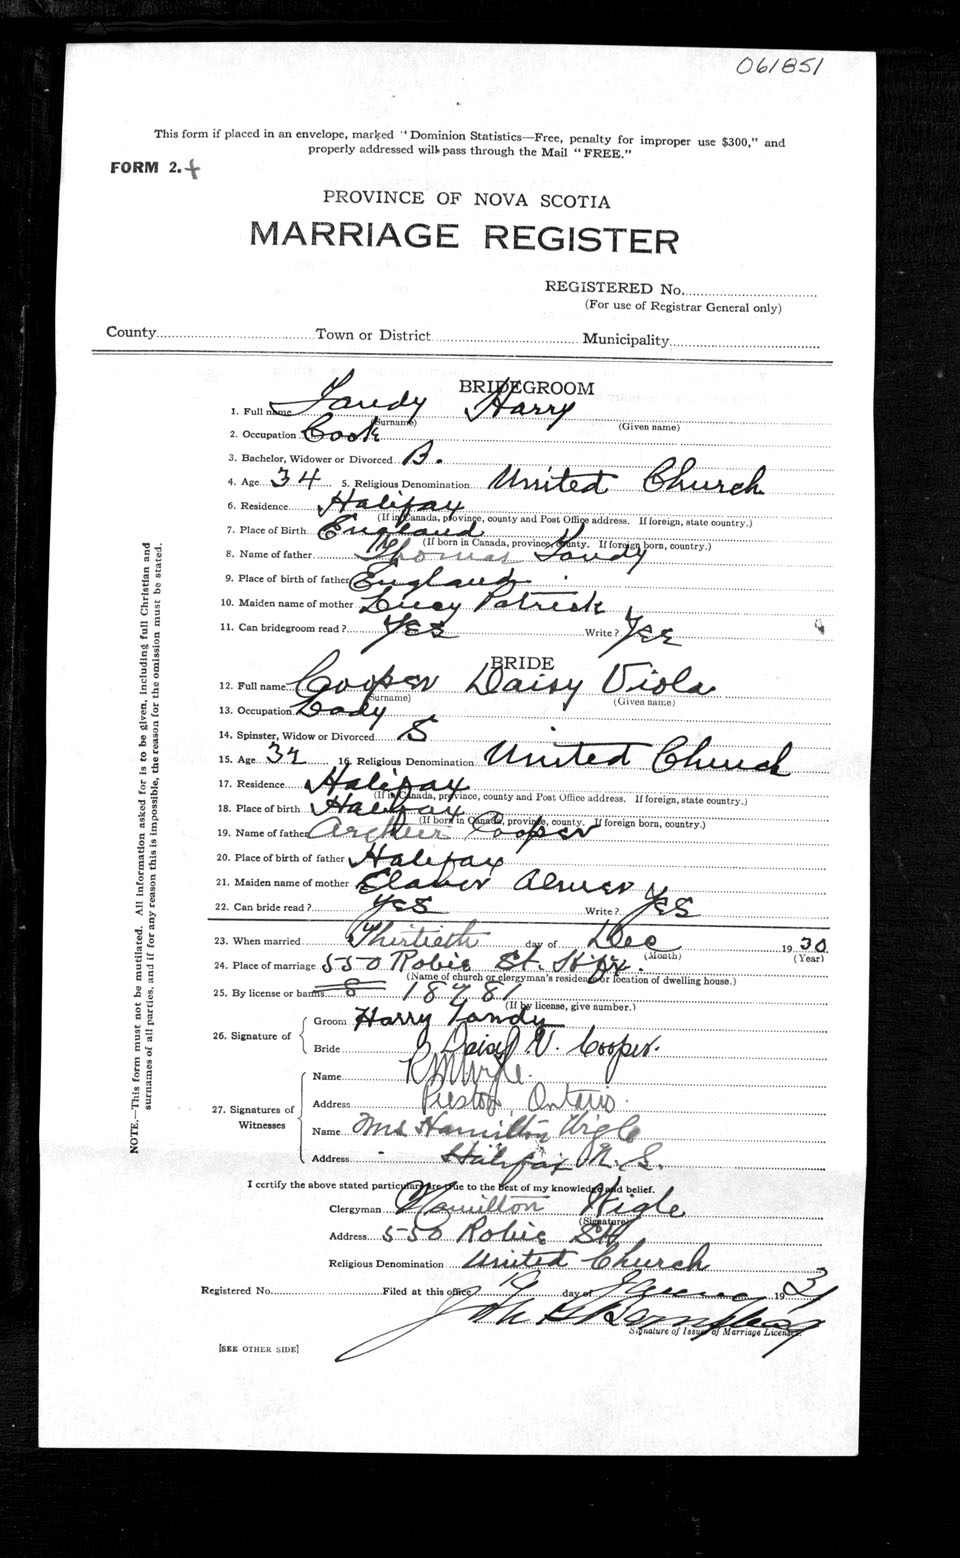 061851
This form if placed in an envelope, marked "Dominion Statistics—Free, penalty for improper use $300," and
properly addressed will pass through the Mail "FREE."
FORM 2.
PROVINCE OF NOVA SCOTIA
MARRIAGE REGISTER
REGISTERED No.
(For use of Registrar General only)
County Town or District Municipality
BRIDEGROOM
1. Full name Tandy Harry
(Surname) (Given name)
2. Occupation Cook
3. Bachelor, Widower or Divorced B.
4. Age 34 5. Religious Denomination United Church
6. Residence Halifax
(If in Canada, province, county and Post Office address. If foreign, state country.)
7. Place of Birth England
(If born in Canada, province, county. If foreign born, country.)
8. Name of father Thomas Tandy
9. Place of birth of father England
10. Maiden name of mother Lucy Patrick
11. Can bridegroom read? Yes Write? Yes
BRIDE
12. Full name Cooper Daisy Viola
(Surname) (Given name)
13. Occupation Lady
14. Spinster, Widow or Divorced S
15. Age 32 16. Religious Denomination United Church
17. Residence Halifax
(If in Canada, province, county and Post Office address. If foreign, state country.)
18. Place of birth Halifax
(If born in Canada, province, county. If foreign born, country.)
19. Name of father Arthur Cooper
20. Place of birth of father Halifax
21. Maiden name of mother
22. Can bride read? Yes Write? Yes
23. When married Thirtieth day of Dec 1930
(Month) (Year)
24. Place of marriage 550 Robie St. Hfx.
(Name of church or clergyman's residence or location of dwelling house.)
25. By license or banns 18781
(If by license, give number.)
26. Signature of
Groom Harry Tandy
Bride Daisy V. Cooper.
27. Signatures of
Witnesses
Name
Address Preston, Ontario.
Name Mrs Hamilton Wigle
Address Halifax N. S.
I certify the above stated particulars are true to the best of my knowledge and belief.
Clergyman Hamilton Wigle
(Signature)
Address 550 Robie St.
Religious Denomination United Church
Registered No. Filed at this office day of 1931
Signature of Issuer of Marriage Licenses.
[SEE OTHER SIDE]
NOTE.—This form must not be mutilated. All information asked for is to be given, including full Christian and
surnames of all parties, and if for any reason this is impossible, the reason for the omission must be stated.